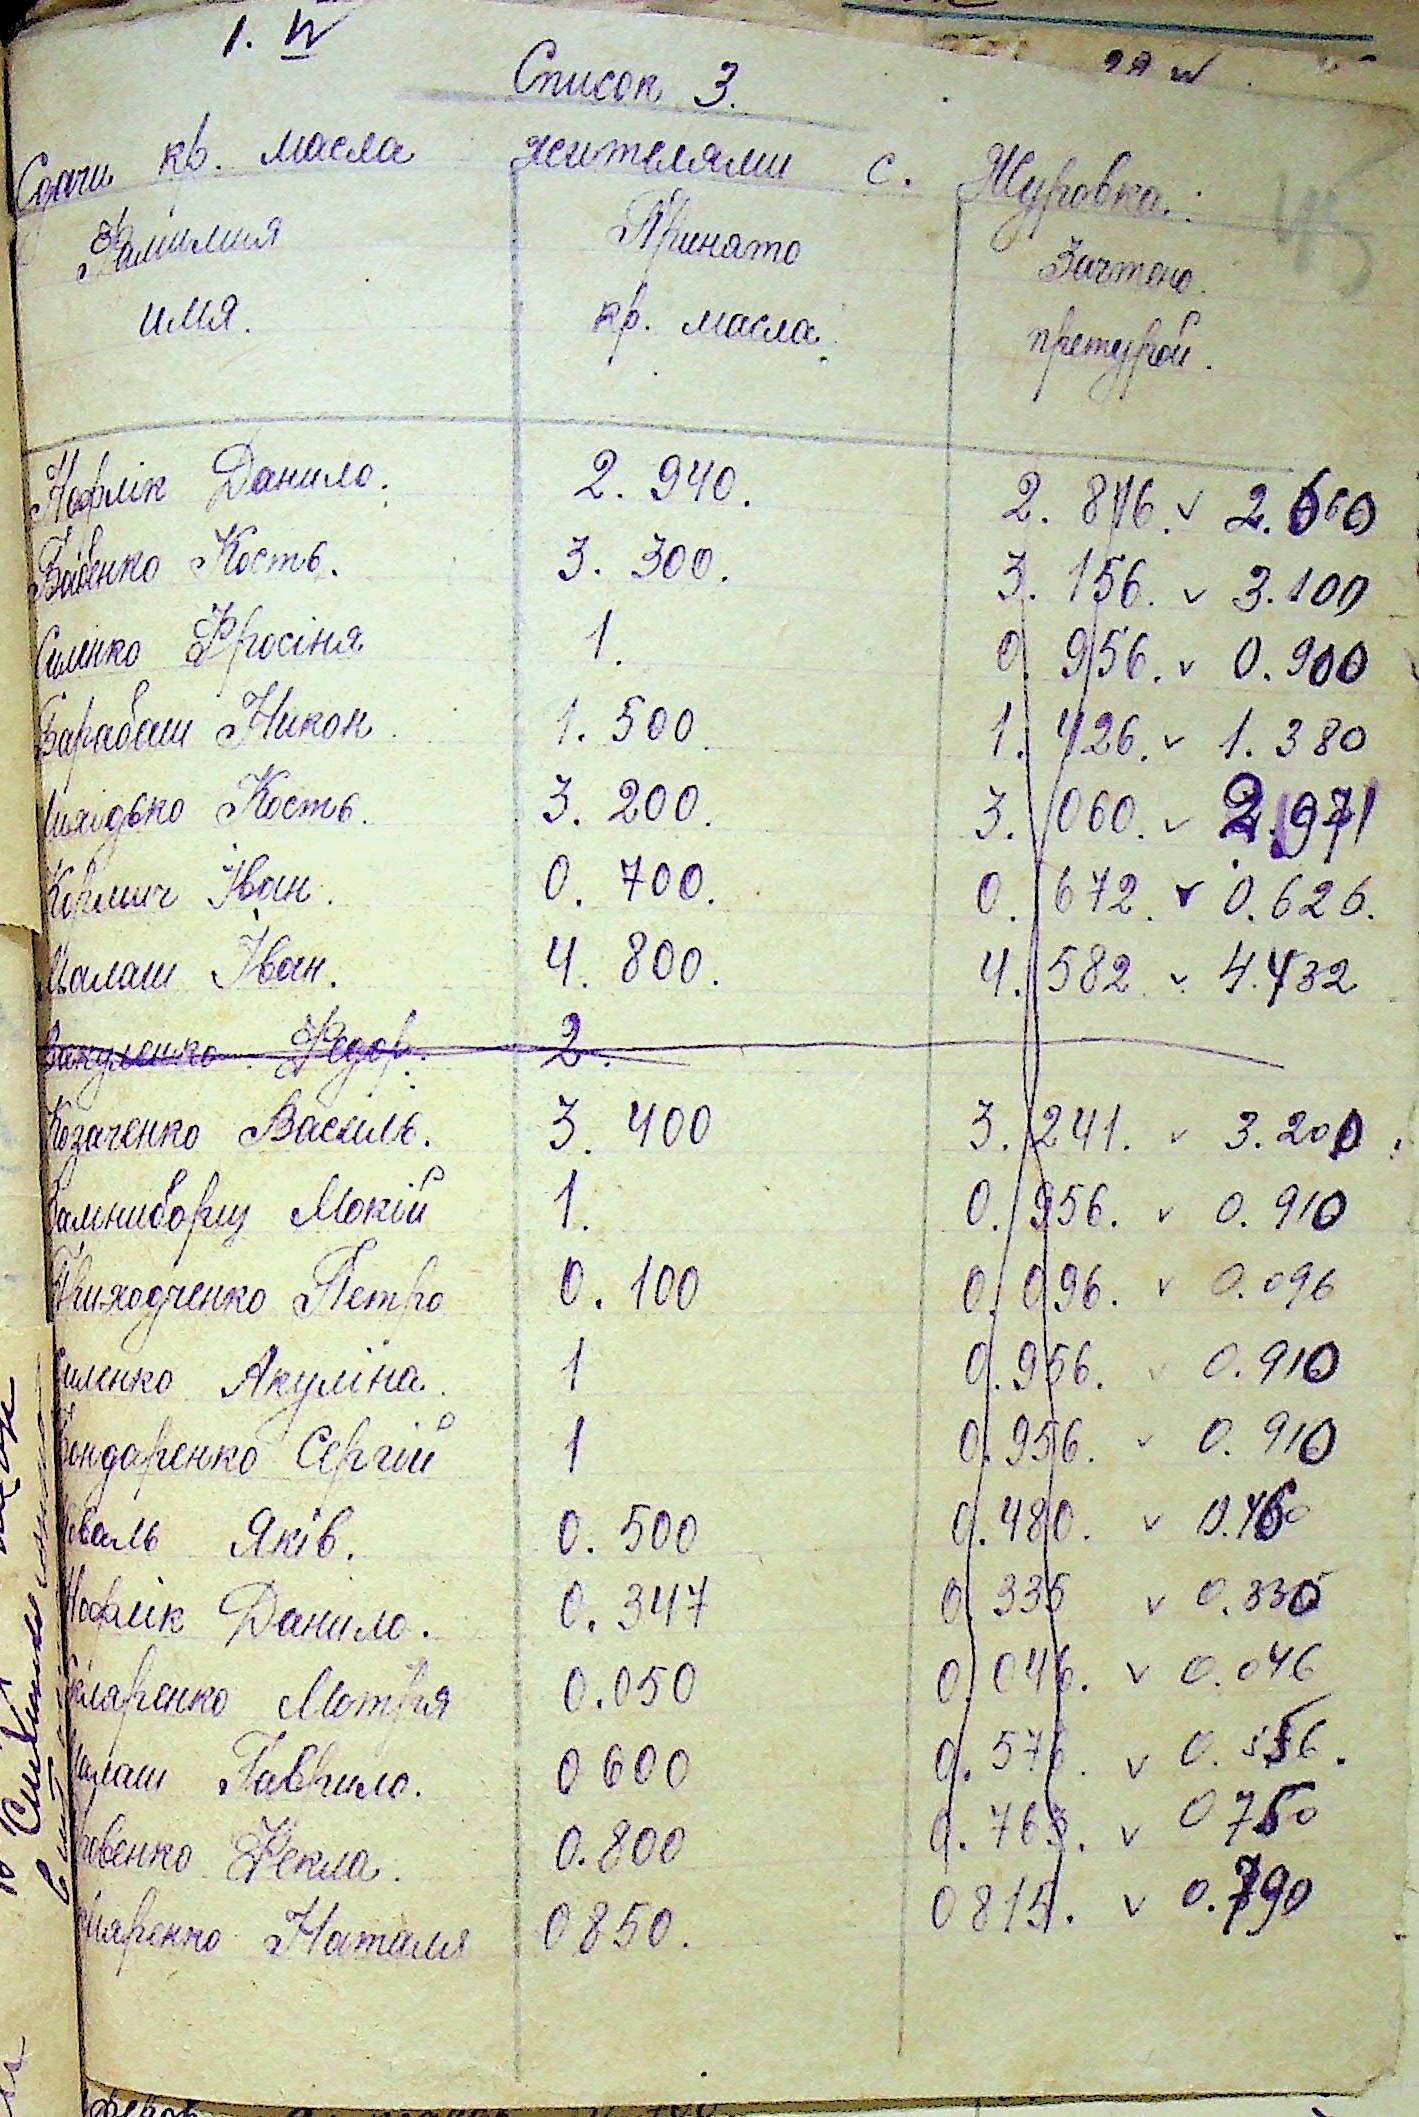 1. IV
Список 3.
Сдачи кр. масла жителями с. Журовка.:
Фамилия Принято Зачтено.
имя. кр. масла. претурой.
Нофлік Данило. 2. 940. 2. 816. v 2.660
Бабенко Кость. 3. 300. 3. 156. v 3.100
Силенко Фросіня 1. 0 956. v 0.900
Барабаш Никон 1. 500. 1. 426. v 1. 380
Кость. 3. 200. 3. 060. v 2.971
Кормич Іван. 0. 700. 0. 672. v 0.626.
Малаш Іван. 4. 800. 4. 582 v 4.432
Вакуленко Федор. 2.
Козаченко Василь. 3. 400 3. 241. v 3.200
Мокій 1. 0. 956. v 0. 910
Приходченко Петро 0. 100 0. 096. v 0.096
Силенко Акуліна. 1 0.956. v 0.910
Бондаренко Сергій 1 0.956. v 0. 910
Коваль Яків. 0. 500 0.480. v 0.460
Нофлік Данило. 0.347 0 335 v 0.330
Мотря 0.050 0 046. v 0.046
Малаш Гаврило. 0 600 0. 576. v 0. 556.
Фекла. 0.800 0. 763. v 0 750
Наталія 0 850. 0 815. v 0.790